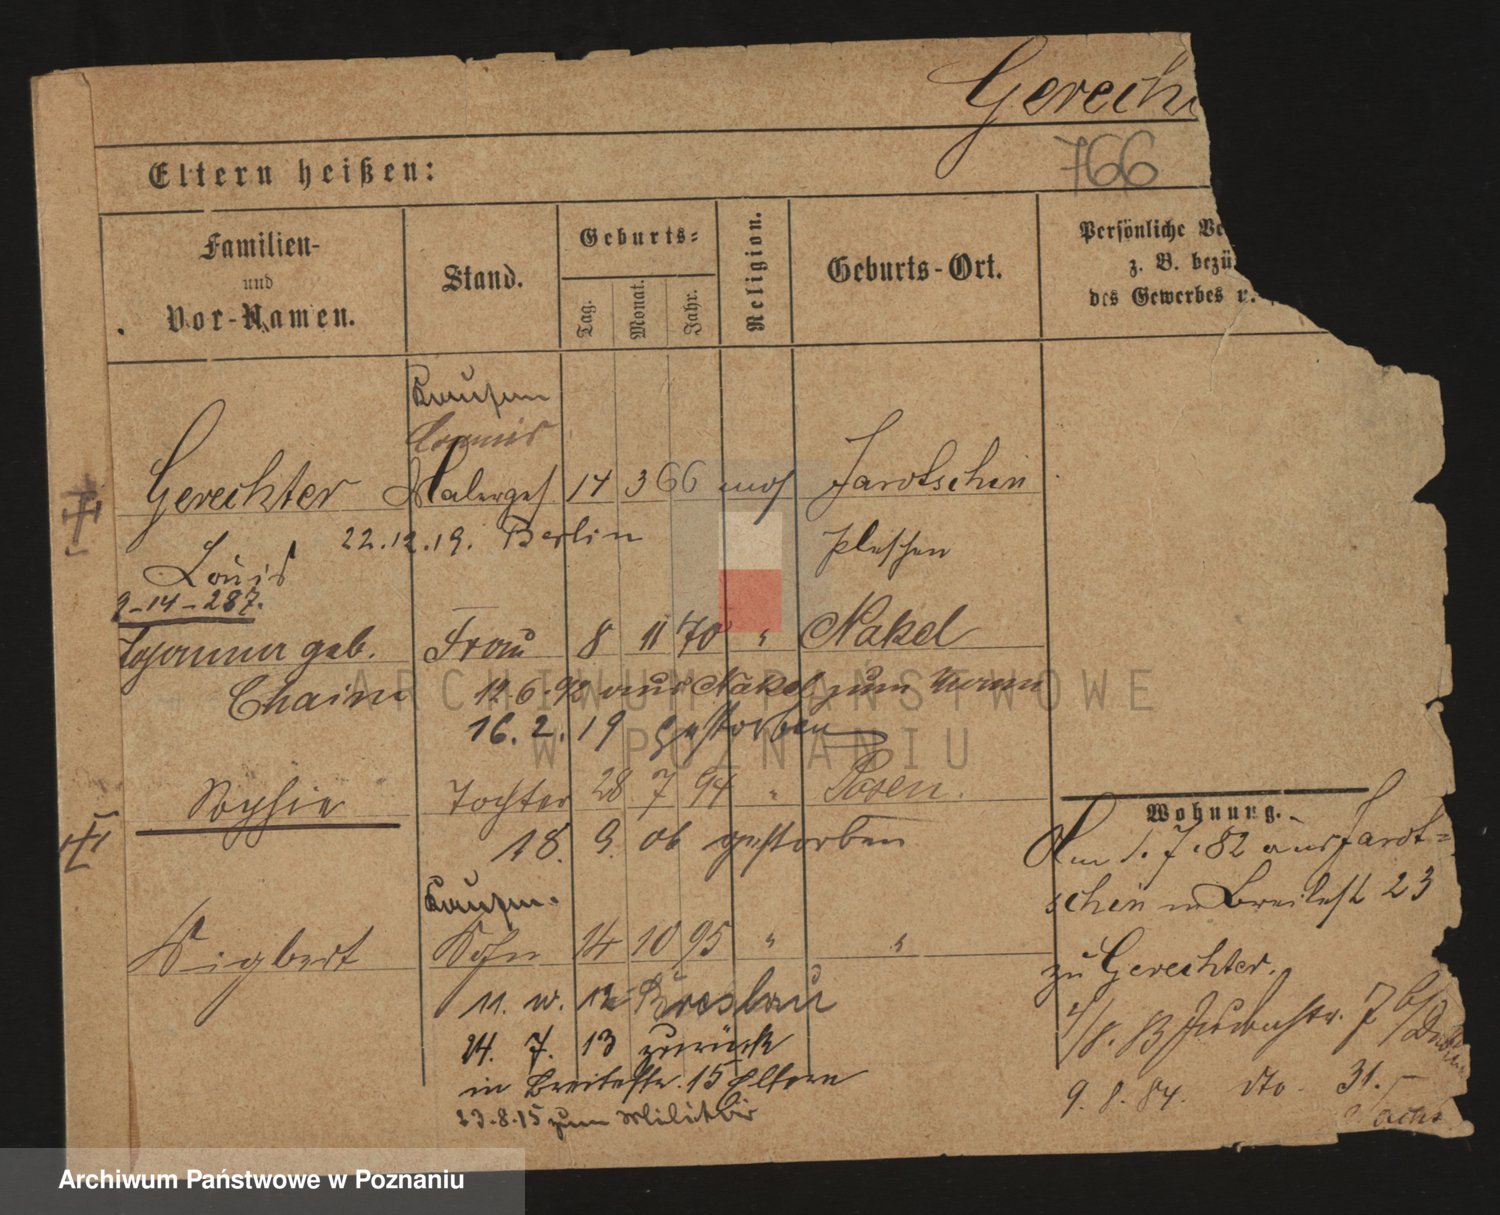 Gerech
766
Eltern heißen:
Familien-
und
Vor-Namen.
Stand.
Geburts-
Tag.
Monat.
Jahr.
Religion.
Geburts-Ort.
Persönliche Ve
z. B. bezü
des Gewerbes
Kaufm
Gerechter Malergeh 14 3 66 mos Jarotschin
22.12.19. Berlin
Pleschen
Louis
9-14-287.
Johanna geb. Frau 8 11 70 " Nakel
Chaim 12.6.92 aus Nakel zum
16. 2. 19 gestorben
Sophie Tochter 28 7 94 " Posen.
18. 9. 06 gestorben
Kaufm.
Sigbert Sohn 14 10 95 " "
11. 12 Breslau
24. 7. 13 zurück
in Breitestr. 15 Eltern
23.8.15 zum Militär
Wohnung.
Am 1.7.82 aus Jarot-
schin Breitestr 23
zu Gerechter.
4/8. 83 Judenstr. 7 b/
9. 8. 84. dto 31.
ARCHIWUM PAŃSTWOWE
W POZNANIU
Archiwum Państwowe w Poznaniu